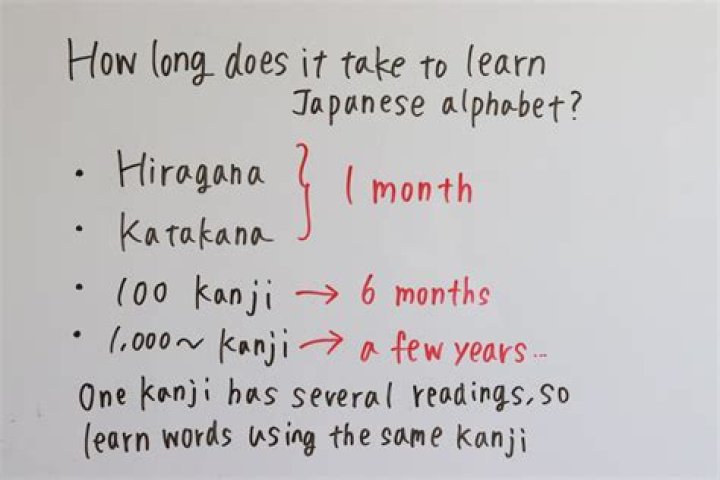 How long does it take to learn
Japanese alphabet?
• Hiragana
• Katakana } 1 month
• 100 kanji → 6 months
• 1,000~ kanji → a few years...
One kanji has several readings, so
learn words using the same kanji